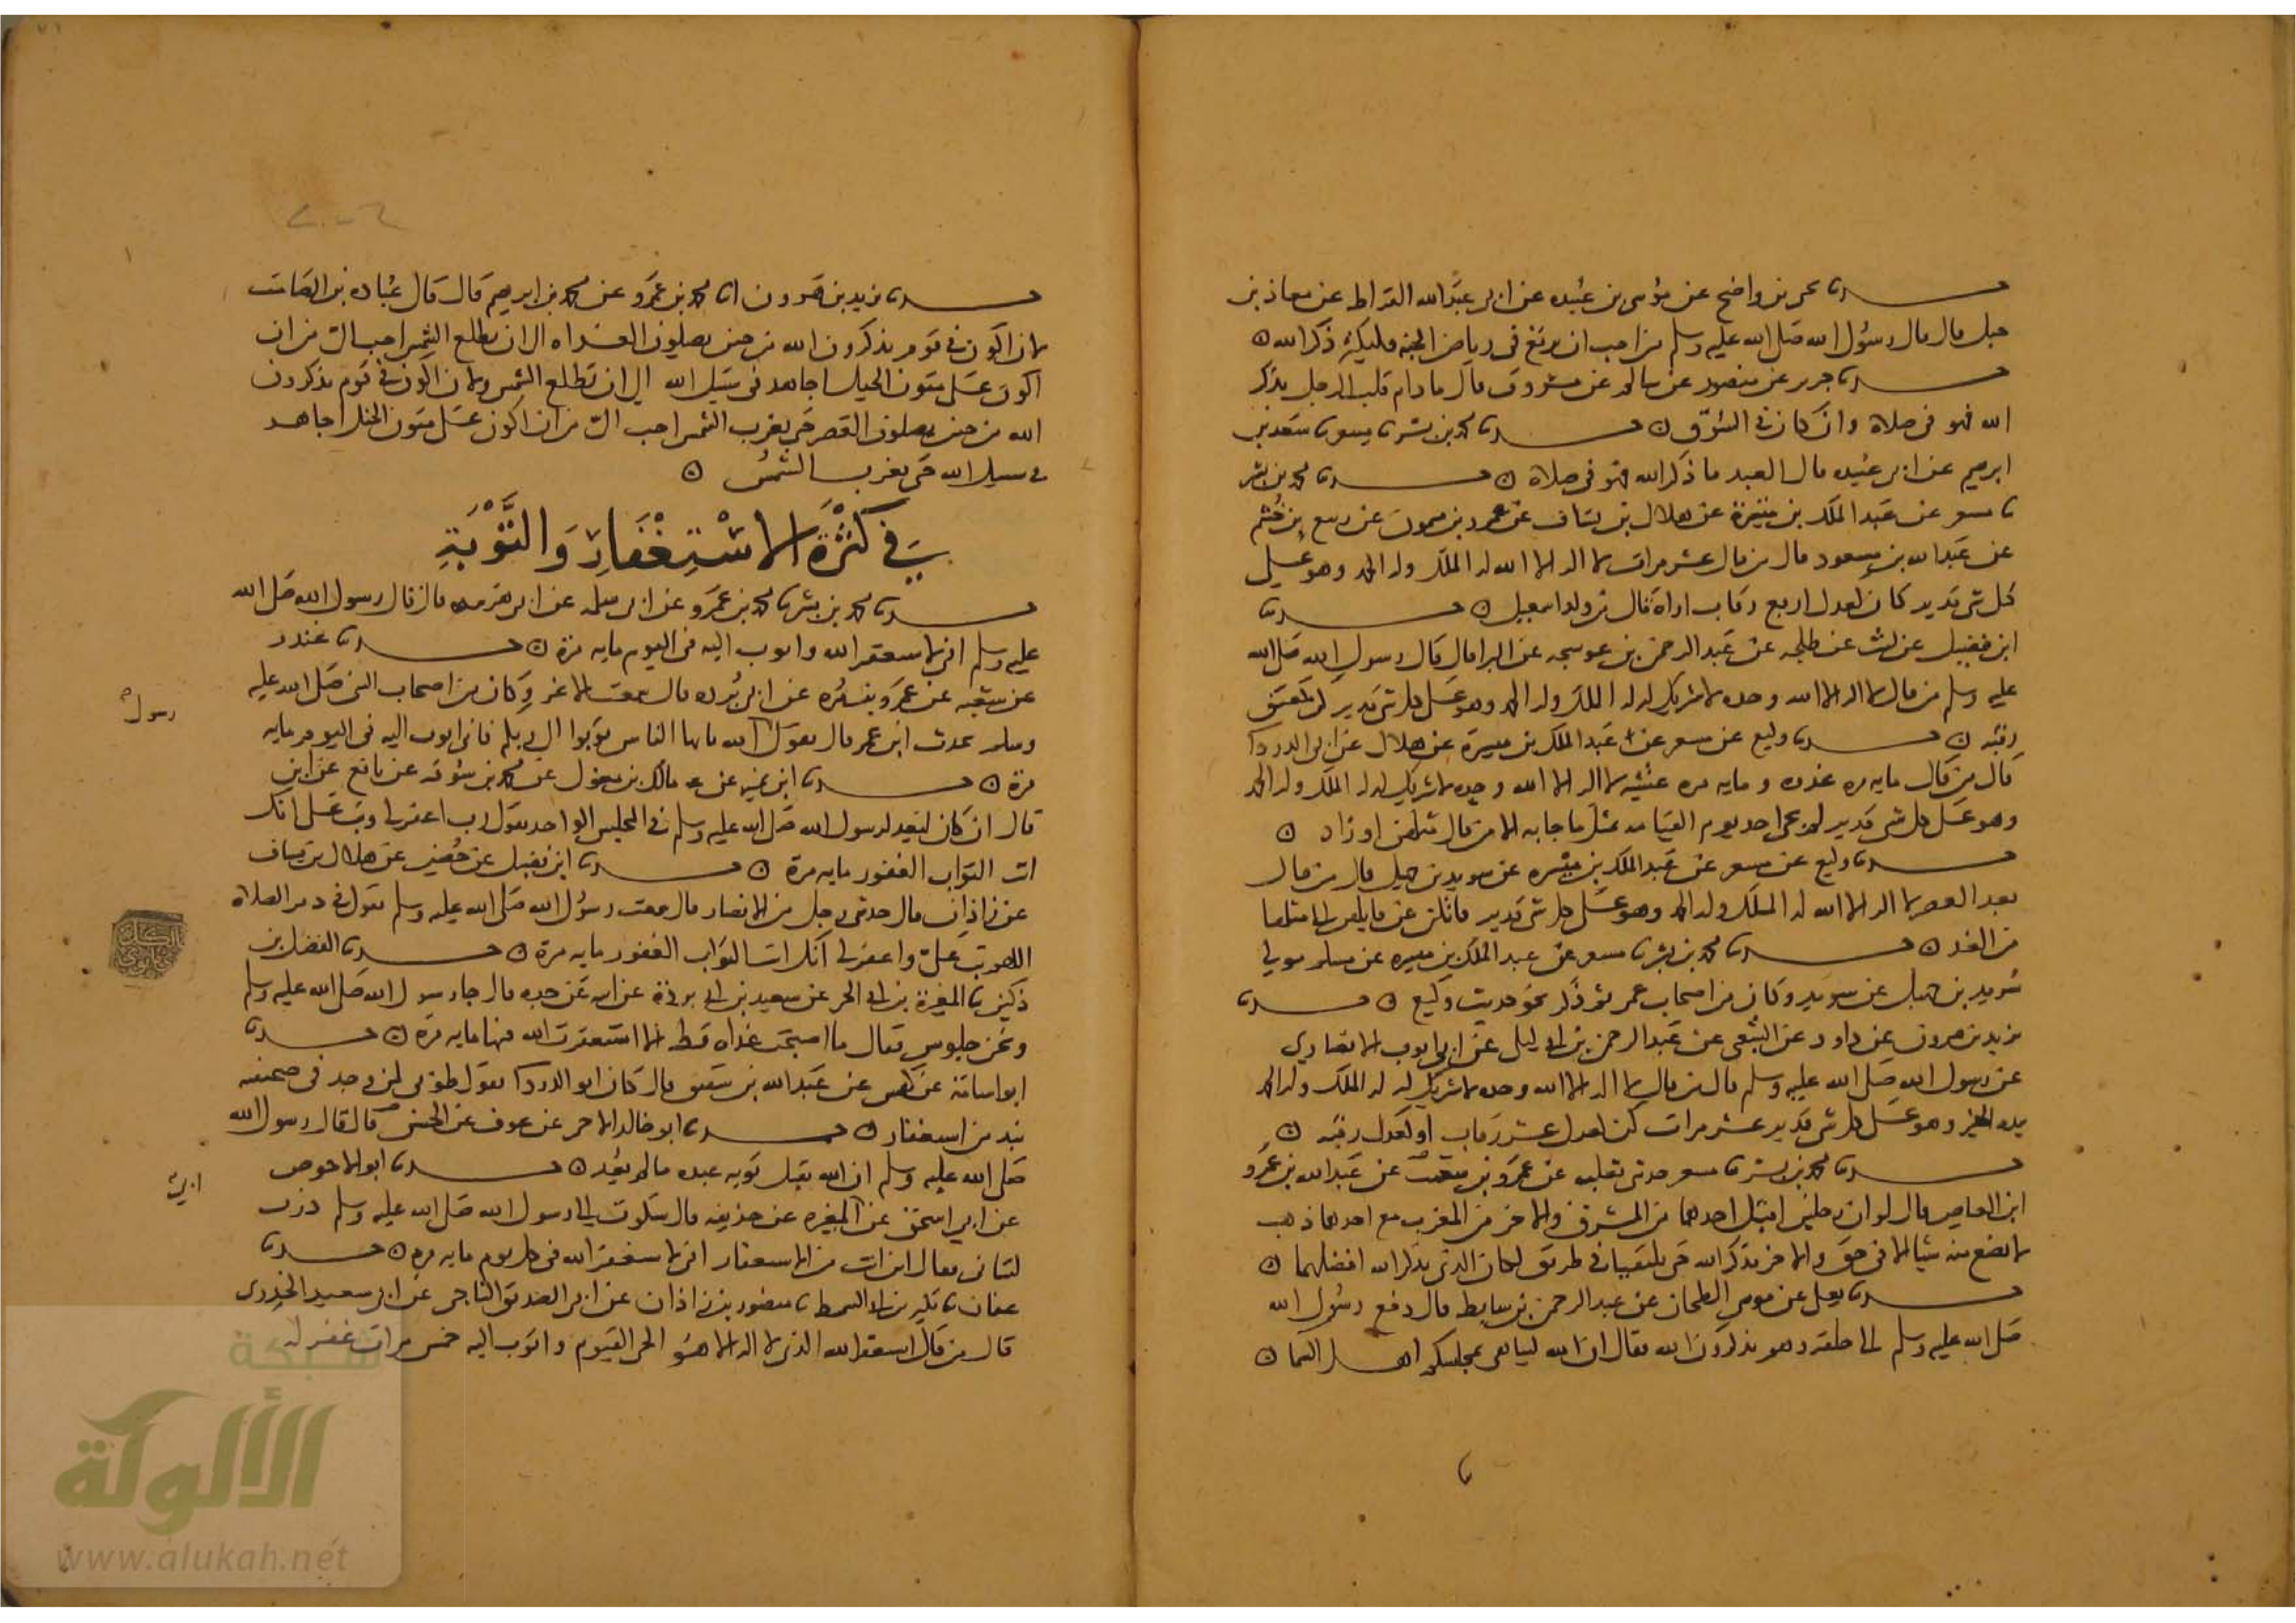 حدثنا يحيى بن واضح عن موسى بن عبيده عن ابي عبد الله القراظ عن معاذ بن
جبل قال قال رسول الله صلى الله عليه وسلم من احب ان يرتع في رياض الجنه فليكثر ذكر الله
حدثنا جرير عن منصور عن سالم عن مسروق قال ما دام قلب الرجل يذكر
الله فهو في صلاة وان كان في السوق حدثنا محمد بن بشر نا مسعر نا سعد بن
ابرهيم عن ابي عبيده قال العبد ما ذكر الله فهو في صلاة حدثنا محمد بن بشر
نا مسعر عن عبد الملك بن ميسرة عن هلال بن يساف عن عمرو بن ميمون عن ربيع بن خثيم
عن عبد الله بن مسعود قال من قال عشر مرات لا اله الا الله له الملك وله الحمد وهو على
كل شى قدير كان كعدل اربع رقاب اراه قال من ولد اسمعيل حدثنا
ابن فضيل عن ليث عن طلحه عن عبد الرحمن بن عوسجه عن البرا قال قال رسول الله صلى الله
عليه وسلم من قال لا اله الا الله وحده لا شريك له له الملك وله الحمد وهو على كل شى قدير كن كعتق
رقبه حدثنا وكيع عن مسعر عن عبد الملك بن ميسرة عن هلال عن ابي الدردا
قال من قال مايه مره غدوه ومايه مره عشيه لا اله الا الله وحده لا شريك له له الملك وله الحمد
وهو على كل شى قدير لم يجى احد يوم القيامه بمثل ما جا به الا من قال مثلهن او زاد
حدثنا وكيع عن مسعر عن عبد الملك بن ميسره عن سويد بن جهيل قال من قال
بعد العصر لا اله الا الله له الملك وله الحمد وهو على كل شى قدير قاتلن عن قايلهن الى مثلها
من الغد حدثنا محمد بن بشر نا مسعر عن عبد الملك بن ميسره عن مسلم مولى
سويد بن جهيل عن سويد وكان من اصحاب عمر ثم ذكر نحو حديث وكيع حدثنا
يزيد بن هرون عن داود عن الشعبى عن عبد الرحمن بن ابي ليلى عن ابي ايوب الانصاري
عن رسول الله صلى الله عليه وسلم قال من قال لا اله الا الله وحده لا شريك له له الملك وله الحمد
بيده الخير وهو على كل شى قدير عشر مرات كن كعدل عشر رقاب او كعدل رقبه
حدثنا محمد بن بشر نا مسعر حدثنى عن عمرو بن عن عبد الله بن عمرو
ابن العاص قال لو ان رجلين اقبل احدهما من المشرق والاخر من المغرب مع احدهما ذهب
لا يضع منه شيا الا في حق والاخر يذكر الله حتى يلتقيان في طريق لكان الذى يذكر الله افضلهما
حدثنا يعلى عن موسى الطحان عن عبد الرحمن بن سابط قال دفع رسول الله
صلى الله عليه وسلم الى حلقه وهم يذكرون الله فقال ان الله ليباهى بمجلسكم اهل السما
حدثنا يزيد بن هرون انا محمد بن عمرو عن محمد بن ابرهيم قال قال عباده بن الصامت
لان اكون في قوم يذكرون الله من حين يصلون الغداه الى ان تطلع الشمس احب الى من ان
اكون على متون الخيل اجاهد في سبيل الله الى ان تطلع الشمس ولان اكون في قوم يذكرون
الله من حين يصلون العصر حتى تغرب الشمس احب الى من ان اكون على متون الخيل اجاهد
في سبيل الله حتى تغرب الشمس
في كَثْرَة الاسْتِغْفَارِ وَالتَّوْبَةِ
حدثنا محمد بن بشر نا محمد بن عمرو عن ابي سلمه عن ابي هريره قال قال رسول الله صلى الله
عليه وسلم انى لاستغفر الله واتوب اليه في اليوم مايه مرة حدثنا غندر
عن شعبه عن عمرو بن مره عن ابي برده قال سمعت الاغر وكان من اصحاب النبى صلى الله عليه
وسلم يحدث ابن عمر قال يقول رسول الله يا ايها الناس توبوا الى ربكم فانى اتوب اليه في اليوم مايه
مرة حدثنا ابن نمير عن مالك بن مغول عن محمد بن سوقه عن نافع عن ابن
قال ان كان ليعد لرسول الله صلى الله عليه وسلم في المجلس الواحد يقول رب اغفر لى وتب على انك
انت التواب الغفور مايه مرة حدثنا ابن فضيل عن حصين عن هلال بن يساف
عن زاذان قال حدثنى رجل من الانصار قال سمعت رسول الله صلى الله عليه وسلم يقول في دبر الصلاة
اللهم تب على واغفر لى انك انت التواب الغفور مايه مرة حدثنا الفضل بن
دكين نا المغيرة بن ابي الحر عن سعيد بن ابي بردة عن ابيه عن جده قال جا رسول الله صلى الله عليه وسلم
ونحن جلوس فقال ما اصبحت غداه قط الا استغفرت الله فيها مايه مرة حدثنا
ابو اسامة عن كهمس عن عبد الله بن شقيق قال كان ابو الدردا يقول طوبى لمن وجد في صحيفته
نبذ من استغفار حدثنا ابو خالد الاحمر عن عوف عن الحسن قال قال رسول الله
صلى الله عليه وسلم ان الله يقبل توبه عبده ما لم حدثنا ابو الاحوص
عن ابي اسحق عن ابي المغيره عن حذيفه قال شكوت الى رسول الله صلى الله عليه وسلم ذرب
لسانى فقال اين انت من الاستغفار انى لاستغفر الله في كل يوم مايه مره حدثنا
عفان نا بكير بن ابي السميط نا منصور بن زاذان عن ابي الصديق الناجى عن ابي سعيد الخدرى
قال من قال استغفر الله الذى لا اله الا هو الحى القيوم واتوب اليه خمس مرات غفر له
رسول
ابي
شبكة
الألوكة
www.alukah.net